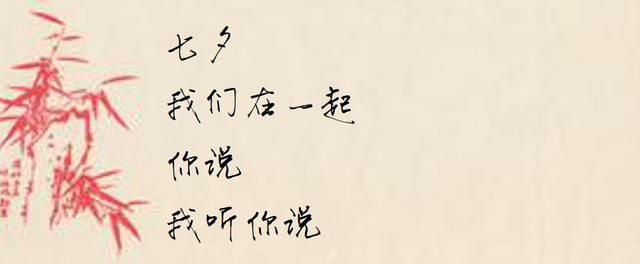 七夕
我们在一起
你说
我听你说